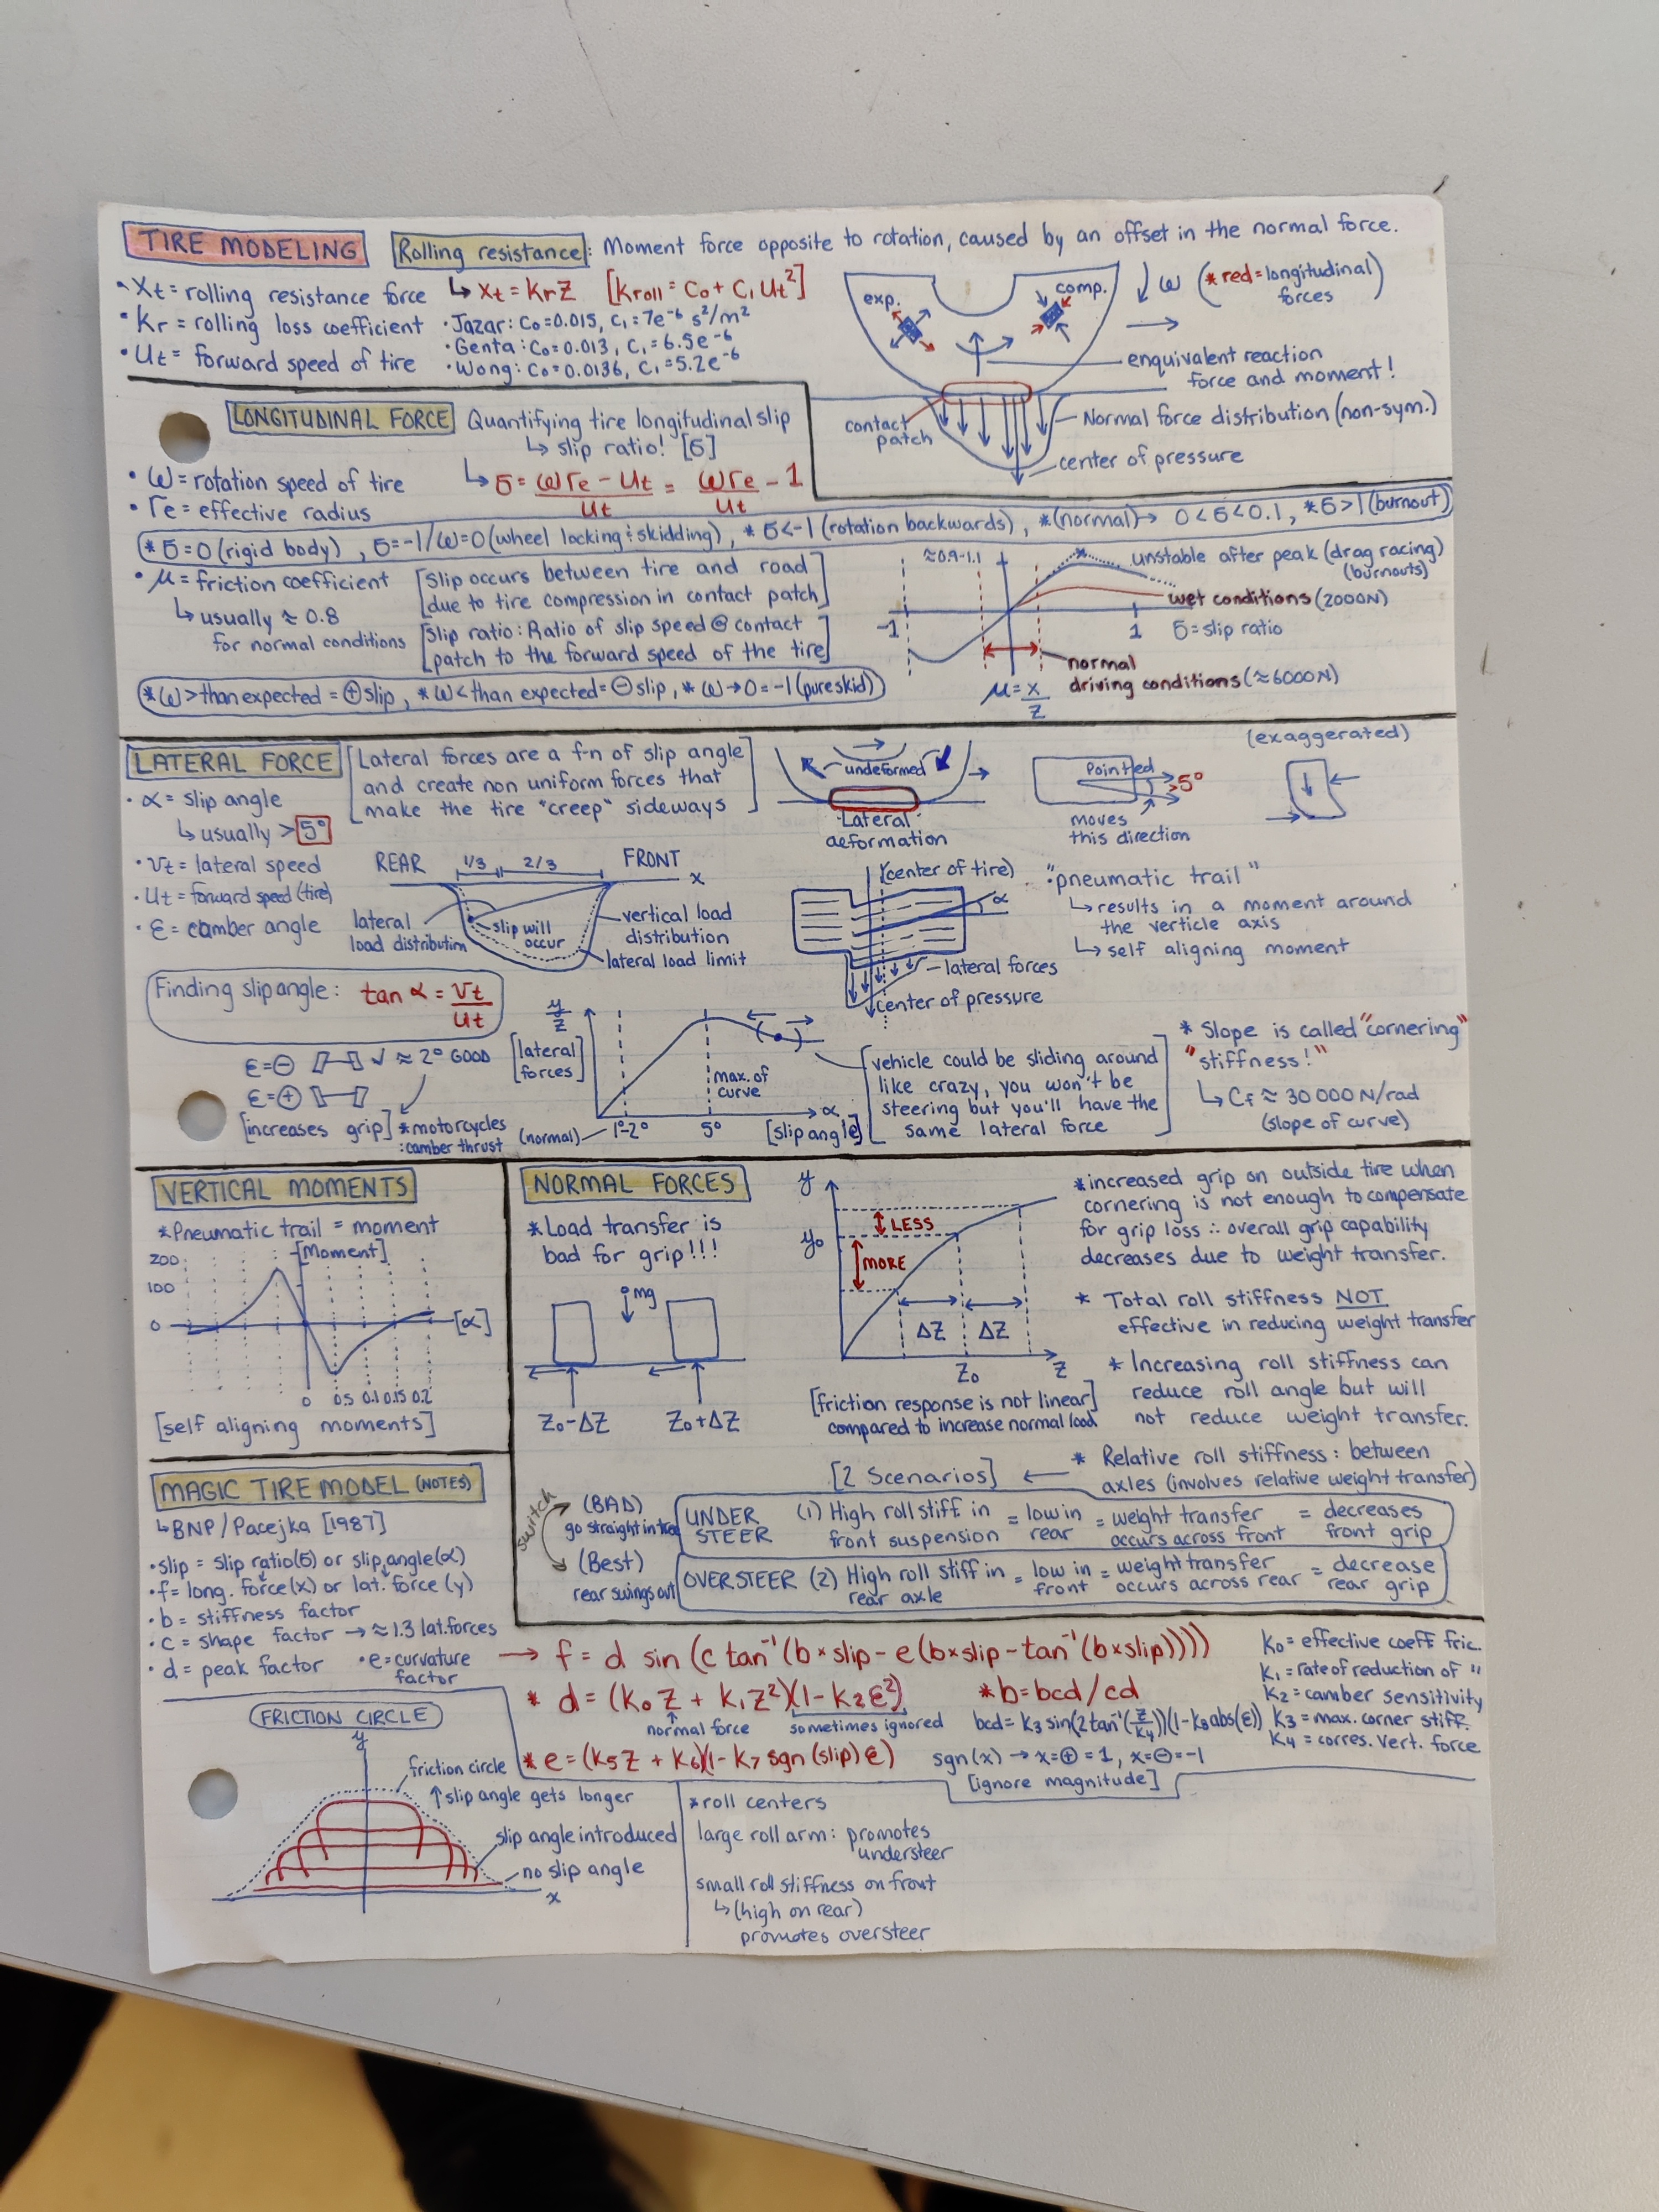 TIRE MODELING
Rolling resistance: Moment force opposite to rotation, caused by an offset in the normal force.
• Xt = rolling resistance force
↳ Xt = KrZ [Kroll = C0 + C1 Ut²]
• Kr = rolling loss coefficient
• Ut = forward speed of tire
• Jazar: C0=0.015, C1=7e⁻⁶ s²/m²
• Genta: C0=0.013, C1=6.5e⁻⁶
• Wong: C0=0.0136, C1=5.2e⁻⁶
exp.
comp.
ω (*red=longitudinal
forces)
enquivalent reaction
force and moment!
contact
patch
Normal force distribution (non-sym.)
center of pressure
LONGITUDINAL FORCE
Quantifying tire longitudinal slip
↳ slip ratio! [σ]
• ω = rotation speed of tire
• re = effective radius
↳ σ = (ωre - Ut)/Ut = ωre/Ut - 1
*σ=0 (rigid body), σ=-1/ω=0 (wheel locking & skidding), *σ<-1 (rotation backwards), *(normal)→ 0<σ<0.1, *σ>1 (burnout)
• μ = friction coefficient
↳ usually ≈ 0.8
for normal conditions
[Slip occurs between tire and road
due to tire compression in contact patch]
[Slip ratio: Ratio of slip speed @ contact
patch to the forward speed of the tire]
≈0.9-1.1
unstable after peak (drag racing)
(burnouts)
wet conditions (2000N)
-1
1
σ=slip ratio
normal
driving conditions (≈6000N)
μ=x/z
*ω> than expected = ⊕ slip, *ω< than expected= ⊖ slip, *ω→0=-1 (pure skid)
LATERAL FORCE
[Lateral forces are a f-n of slip angle
and create non uniform forces that
make the tire "creep" sideways]
• α = slip angle
↳ usually > 5°
• Vt = lateral speed
• Ut = forward speed (tire)
• ε = camber angle
undeformed
Lateral
deformation
Pointed
5°
moves
this direction
(exaggerated)
REAR
1/3
2/3
FRONT
x
lateral
load distribution
slip will
occur
vertical load
distribution
lateral load limit
(center of tire)
α
lateral forces
center of pressure
"pneumatic trail"
↳ results in a moment around
the verticle axis
↳ self aligning moment
Finding slip angle: tan α = Vt/Ut
ε=⊖ ✓ ≈ 2° GOOD
ε=⊕
[increases grip]
*motorcycles
:camber thrust
y/z
[lateral
forces]
max. of
curve
(normal)
1°-2°
5°
α
[slip angle]
[vehicle could be sliding around
like crazy, you won't be
steering but you'll have the
same lateral force]
* Slope is called "cornering"
"stiffness!"
↳ Cf ≈ 30 000 N/rad
(slope of curve)
VERTICAL MOMENTS
*Pneumatic trail = moment
[Moment]
200
100
0
[α]
0 0.5 0.1 0.15 0.2
[self aligning moments]
NORMAL FORCES
*Load transfer is
bad for grip!!!
mg
Z0-ΔZ
Z0+ΔZ
y
y0
LESS
MORE
ΔZ
ΔZ
Z0
Z
[friction response is not linear]
compared to increase normal load
*increased grip on outside tire when
cornering is not enough to compensate
for grip loss ∴ overall grip capability
decreases due to weight transfer.
* Total roll stiffness NOT
effective in reducing weight transfer
* Increasing roll stiffness can
reduce roll angle but will
not reduce weight transfer.
* Relative roll stiffness: between
axles (involves relative weight transfer)
[2 Scenarios]
switch
(BAD)
go straight in
(Best)
rear swings out
UNDER
STEER
(1) High roll stiff in
front suspension
= low in
rear
= weight transfer
occurs across front
= decreases
front grip
OVERSTEER
(2) High roll stiff in
rear axle
= low in
front
= weight transfer
occurs across rear
= decrease
rear grip
MAGIC TIRE MODEL (NOTES)
↳ BNP/Pacejka [1987]
• slip = slip ratio(σ) or slip angle(α)
• f = long. force(x) or lat. force (y)
• b = stiffness factor
• c = shape factor → ≈1.3 lat.forces
• d = peak factor
• e=curvature
factor
→ f = d sin (c tan⁻¹(b×slip - e(b×slip-tan⁻¹(b×slip))))
* d = (k0Z + k1Z²)(1-k2ε²)
normal force
sometimes ignored
* b=bcd/cd
bcd= k3 sin(2tan⁻¹(z/k4))(1-k8abs(ε))
* e = (k5Z + k6)(1-k7 sgn(slip)ε)
sgn(x) → x=⊕=1, x=⊖=-1
[ignore magnitude]
k0= effective coeff fric.
k1=rate of reduction of "
k2=camber sensitivity
k3 = max. corner stiff.
k4 = corres. vert. force
FRICTION CIRCLE
y
friction circle
↑slip angle gets longer
slip angle introduced
no slip angle
x
*roll centers
large roll arm: promotes
understeer
small roll stiffness on front
↳ (high on rear)
promotes oversteer